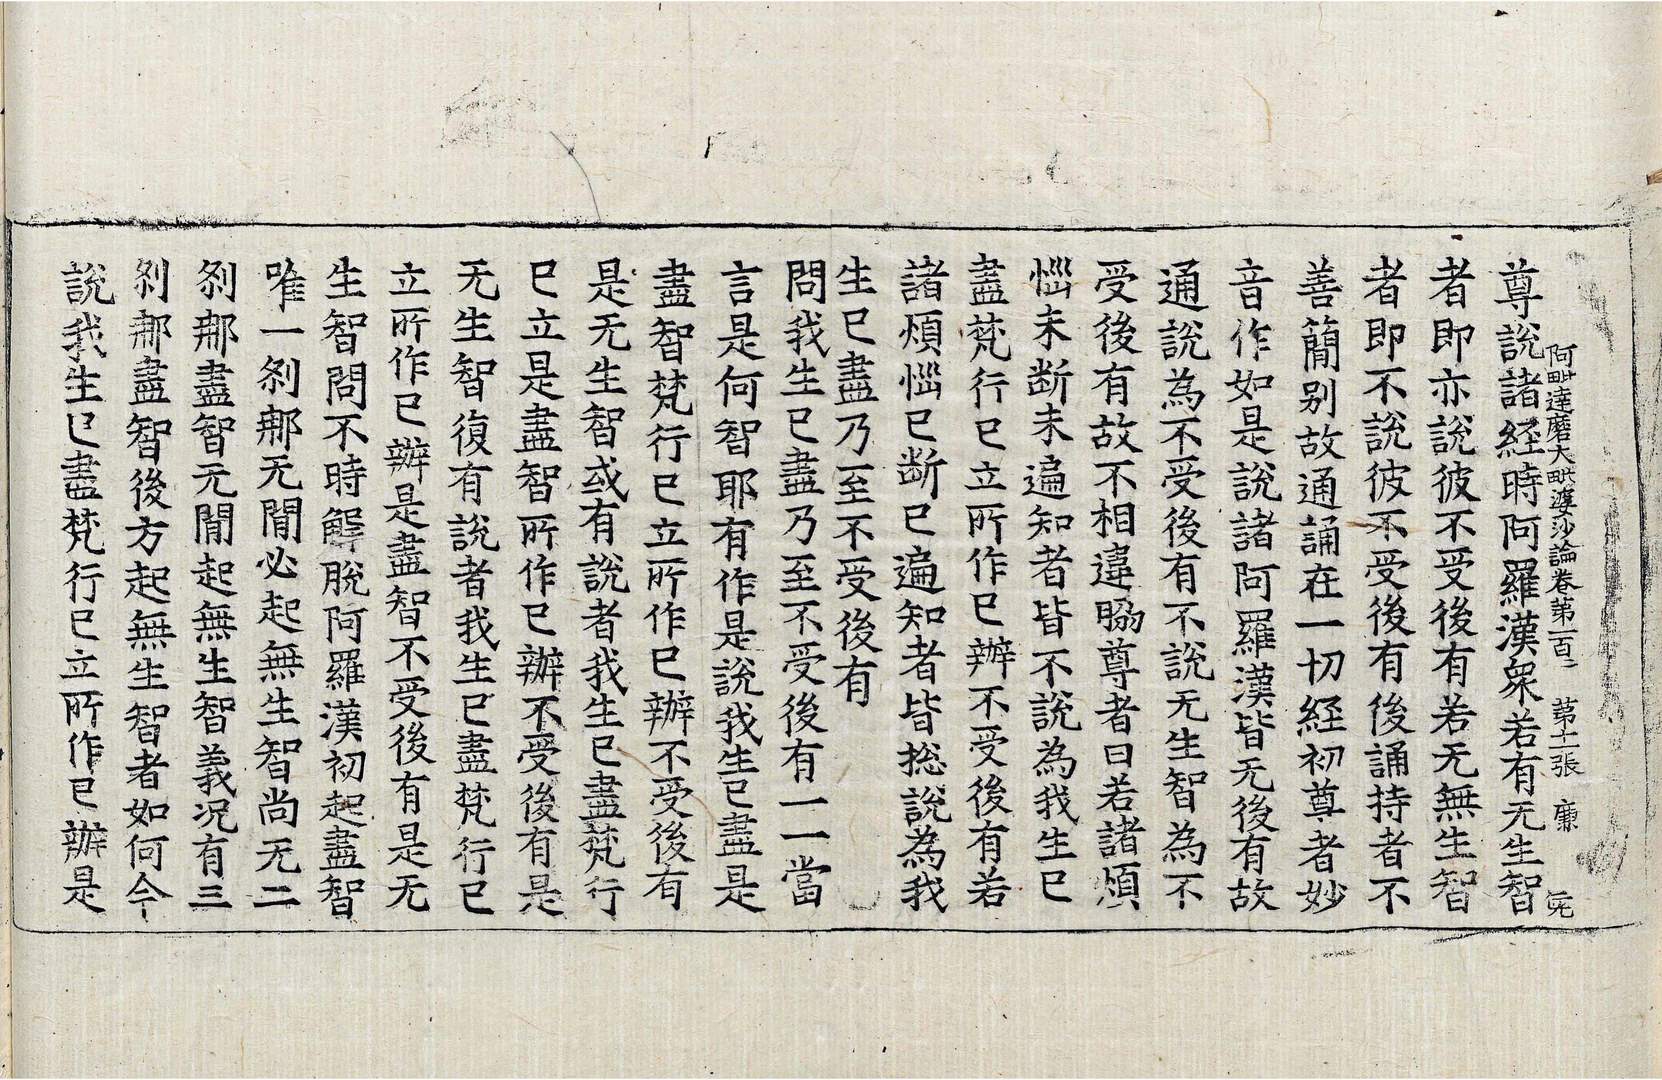 阿毗達磨大毗婆沙論卷第一百二　第十一張　廉
尊說諸経時阿羅漢衆若有无生智
者即亦說彼不受後有若无無生智
者即不說彼不受後有後誦持者不
善簡别故通誦在一切経初尊者妙
音作如是說諸阿羅漢皆无後有故
通說為不受後有不說无生智為不
受後有故不相違脇尊者曰若諸煩
惱未斷未遍知者皆不說為我生已
盡梵行已立所作已辦不受後有若
諸煩惱已斷已遍知者皆捴說為我
生已盡乃至不受後有
問我生已盡乃至不受後有一一當
言是何智耶有作是說我生已盡是
盡智梵行已立所作已辦不受後有
是无生智或有說者我生已盡梵行
已立是盡智所作已辦不受後有是
无生智復有說者我生已盡梵行已
立所作已辦是盡智不受後有是无
生智問不時解脫阿羅漢初起盡智
唯一刹那无閒必起無生智尚无二
刹那盡智无閒起無生智義况有三
刹那盡智後方起無生智者如何今
說我生已盡梵行已立所作已辦是